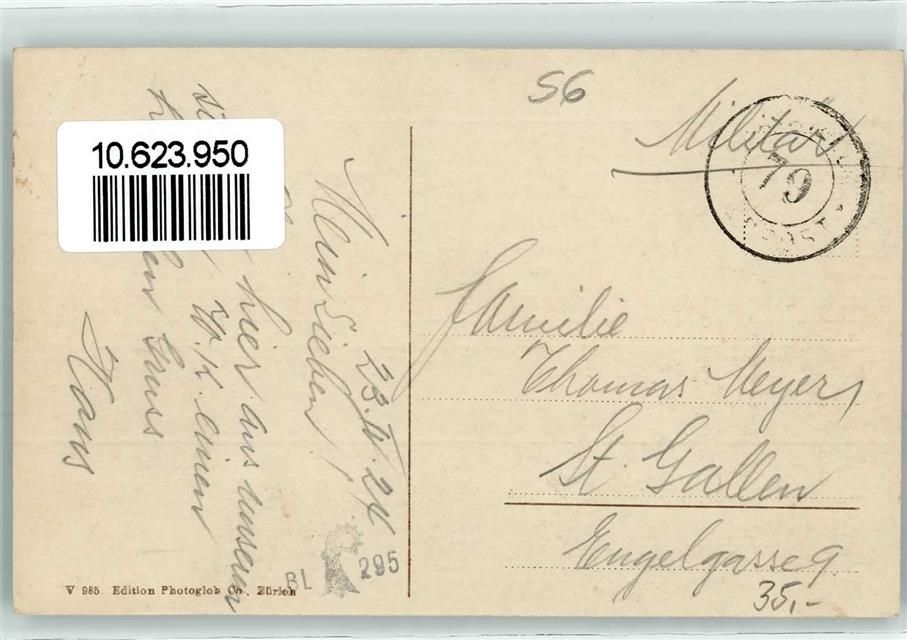 S6
Militär
79
10.623.950
23. IV. 24
Meine Lieben!
hier aus unserm
W.K. einen
Gruss
Hans
Familie
Thomas Meyer,
St. Gallen
Engelgasse 9.
35,-
BL 295
V 985 Edition Photoglob Co., Zürich